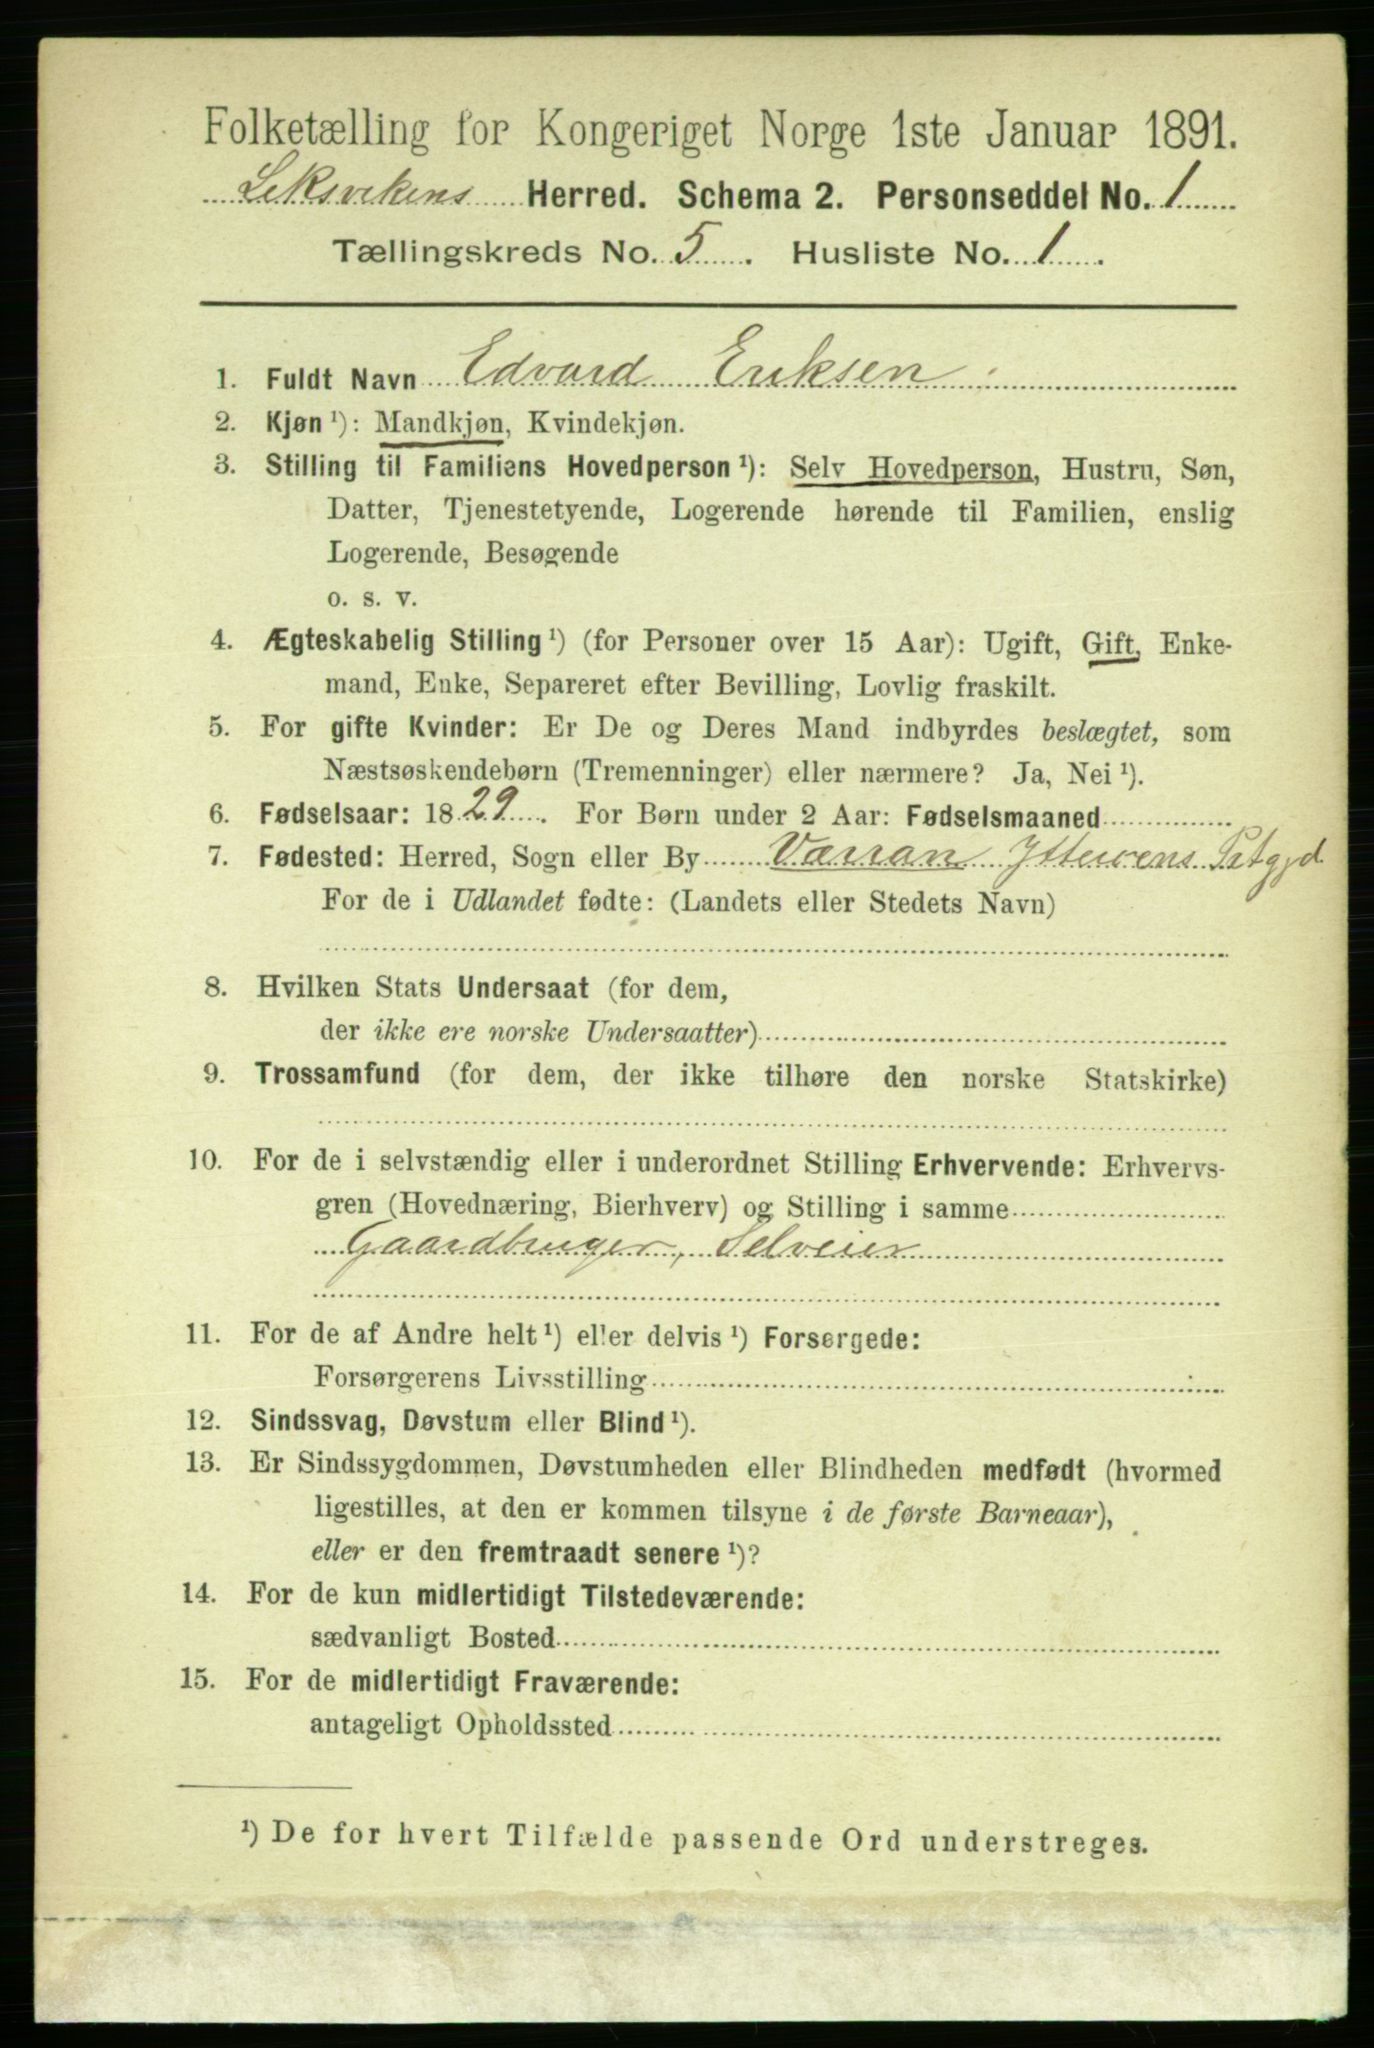 Folketælling for Kongeriget Norge 1ste Januar 1891.
Leksvikens Herred. Schema 2. Personseddel No. 1
Tællingskreds No. 5. Husliste No. 1.
1. Fuldt Navn Edvard Eriksen
2. Kjøn ¹): Mandkjøn, Kvindekjøn.
3. Stilling til Familiens Hovedperson ¹): Selv Hovedperson, Hustru, Søn,
Datter, Tjenestetyende, Logerende hørende til Familien, enslig
Logerende, Besøgende
o. s. v.
4. Ægteskabelig Stilling ¹) (for Personer over 15 Aar): Ugift, Gift, Enke-
mand, Enke, Separeret efter Bevilling, Lovlig fraskilt.
5. For gifte Kvinder: Er De og Deres Mand indbyrdes beslægtet, som
Næstsøskendebørn (Tremenninger) eller nærmere? Ja, Nei ¹).
6. Fødselsaar: 1829. For Børn under 2 Aar: Fødselsmaaned
7. Fødested: Herred, Sogn eller By Værran Ytterøens Prtgjd
For de i Udlandet fødte: (Landets eller Stedets Navn)
8. Hvilken Stats Undersaat (for dem,
der ikke ere norske Undersaatter)
9. Trossamfund (for dem, der ikke tilhøre den norske Statskirke)
10. For de i selvstændig eller i underordnet Stilling Erhvervende: Erhvervs-
gren (Hovednæring, Bierhverv) og Stilling i samme
Gaardbruger, Selveier
11. For de af Andre helt ¹) eller delvis ¹) Forsørgede:
Forsørgerens Livsstilling
12. Sindssvag, Døvstum eller Blind ¹).
13. Er Sindssygdommen, Døvstumheden eller Blindheden medfødt (hvormed
ligestilles, at den er kommen tilsyne i de første Barneaar),
eller er den fremtraadt senere ¹)?
14. For de kun midlertidigt Tilstedeværende:
sædvanligt Bosted
15. For de midlertidigt Fraværende:
antageligt Opholdssted
¹) De for hvert Tilfælde passende Ord understreges.